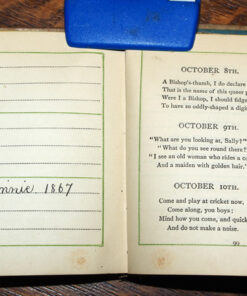 OCTOBER 8TH.
A Bishop's-thumb, I do declare
That is the name of this queer
Were I a Bishop, I should
To have so oddly-shaped a
OCTOBER 9TH.
"What are you looking at, Sally?"
"What do you see round there?
"I see an old woman who rides a
And a maiden with golden hair.
nnie 1867
OCTOBER 10TH.
Come and play at cricket now,
Come along, you boys;
Mind how you come, and quick
And do not make a noise.
99